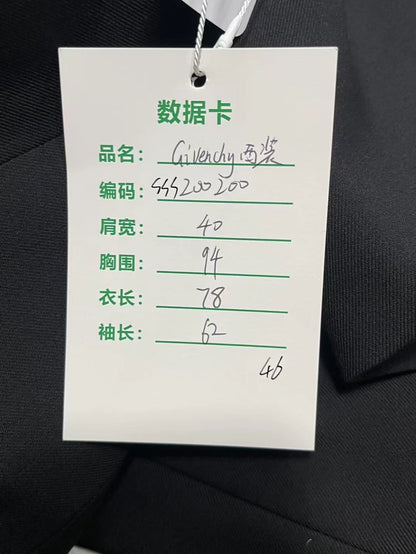 数据卡
品名: Givenchy西装
编码: SSS200200
肩宽: 40
胸围: 94
衣长: 78
袖长: 62
46